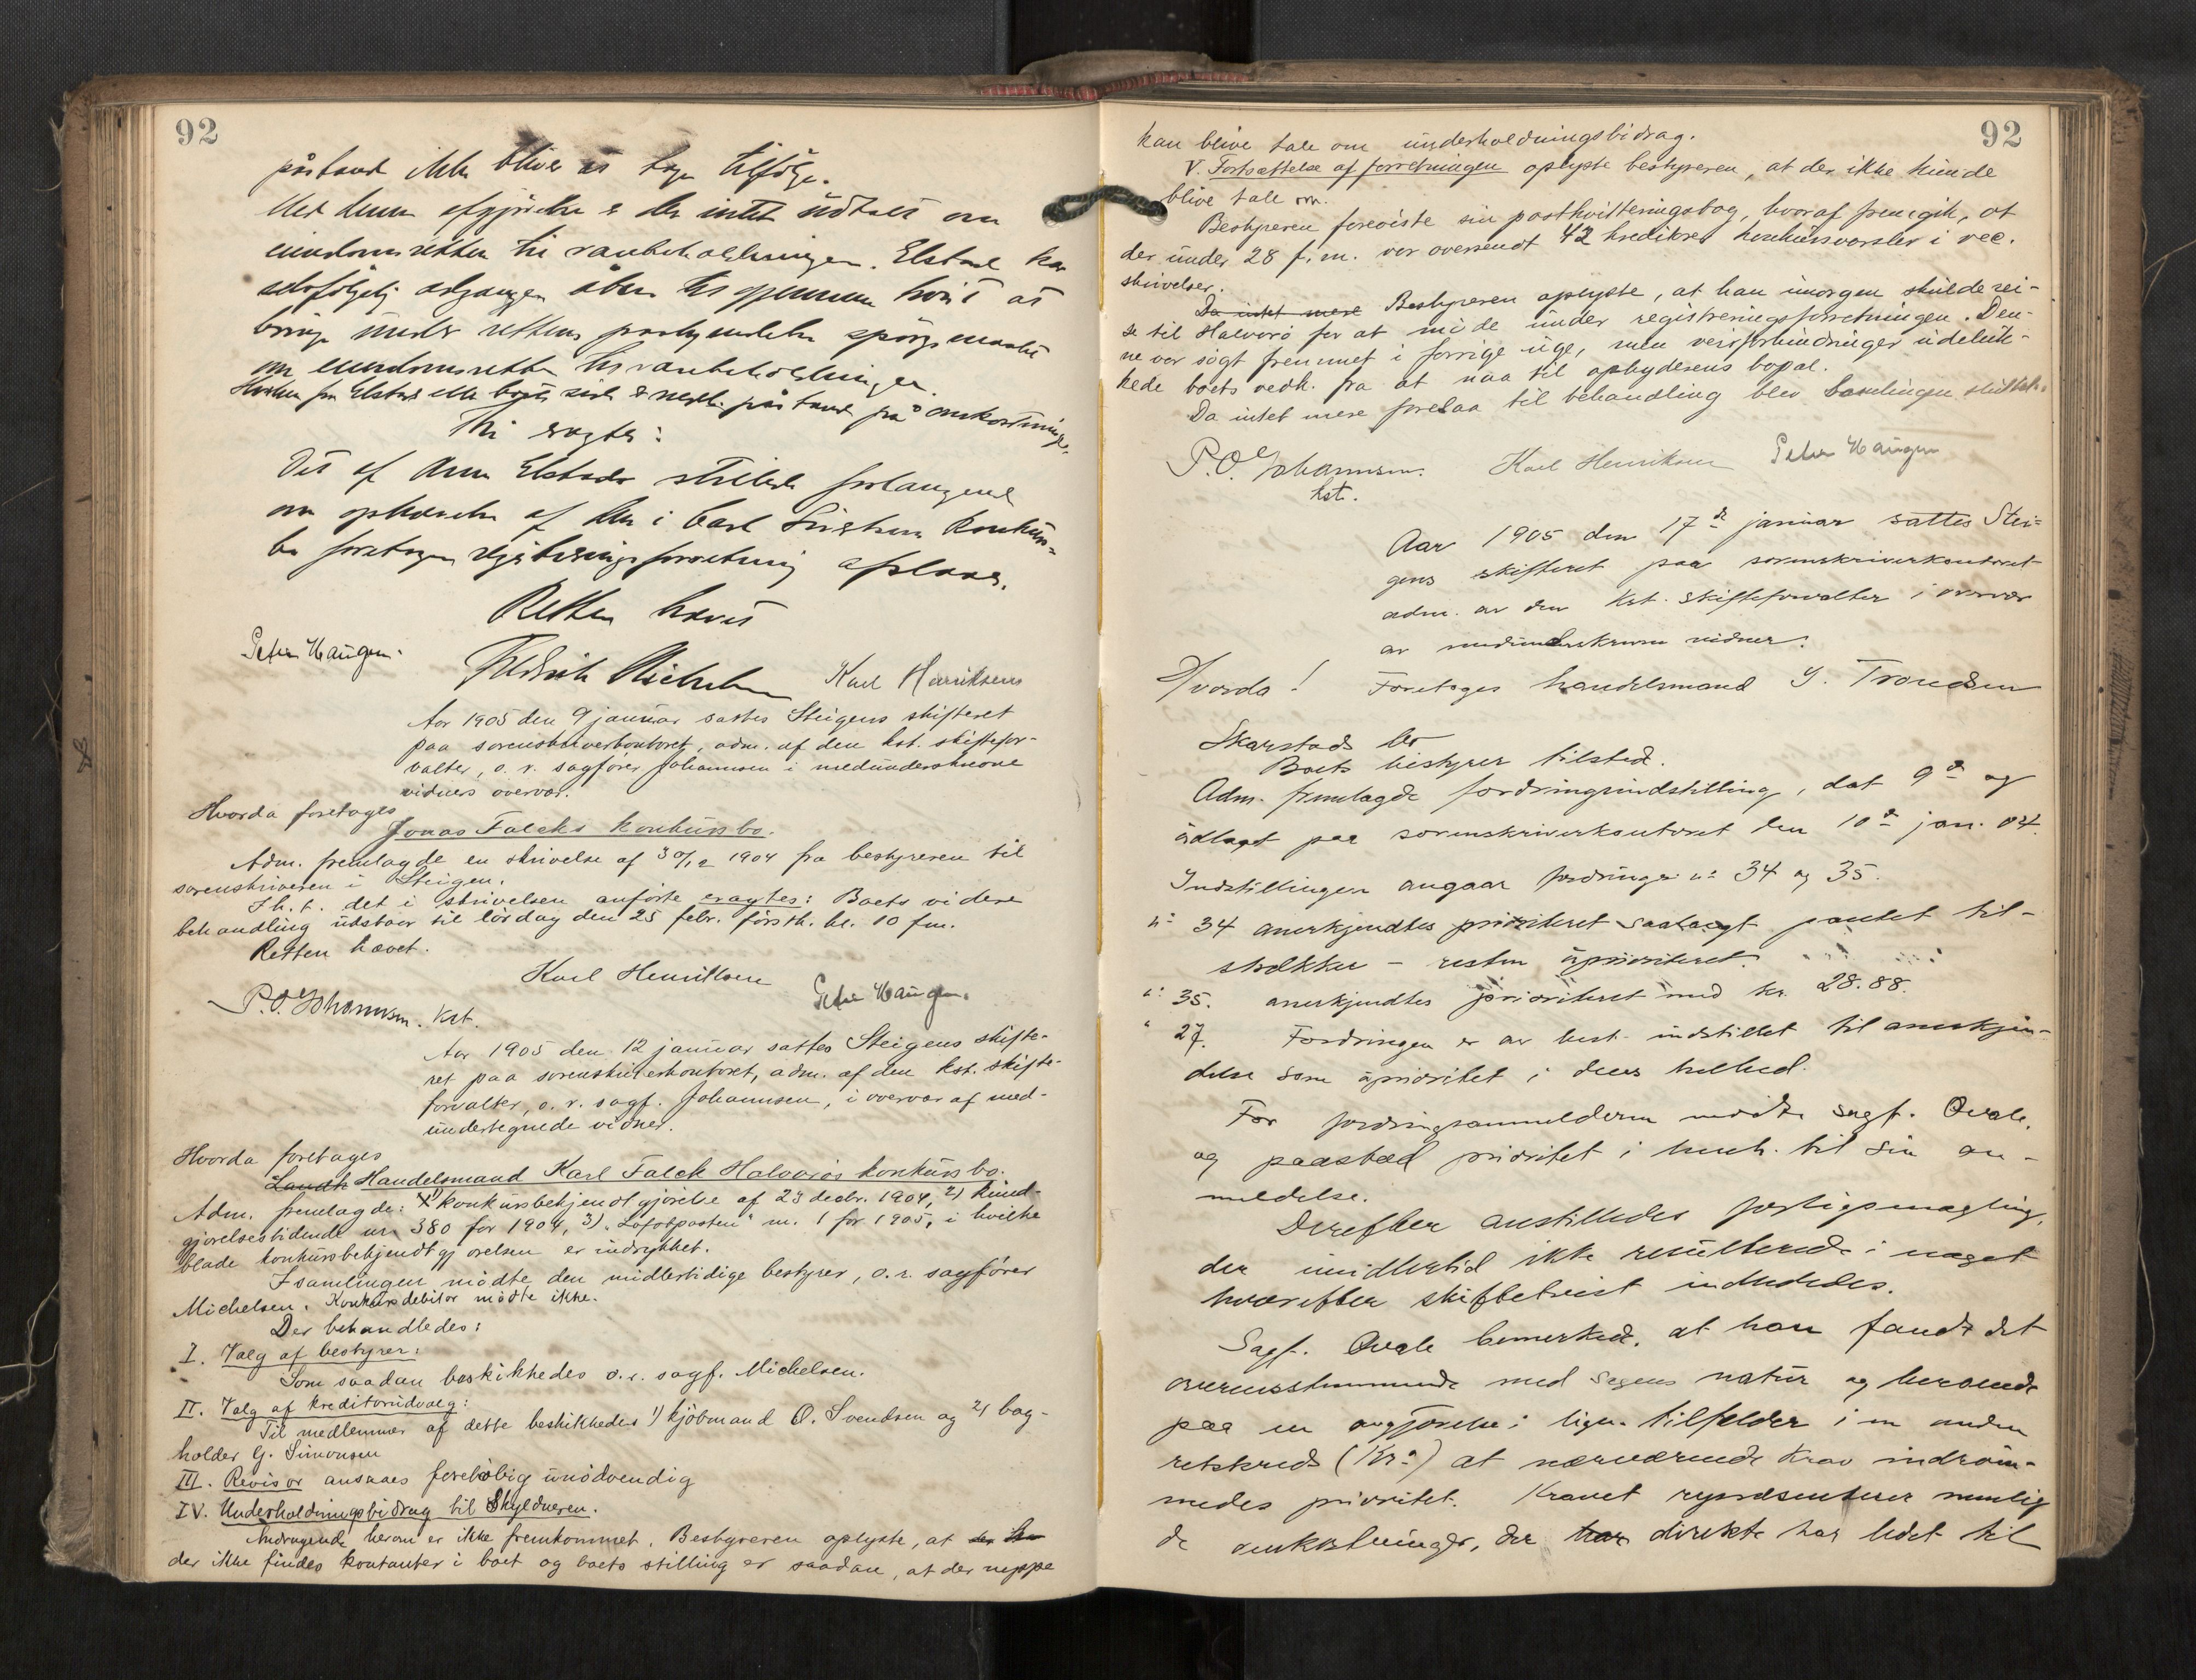 92
påstand ikke bliver at tage tilfølge.
Med denne afgjørelse er der intet üdtalt om
eiendomsretten til varebeholdningen. Elstad har
selvfølgelig adgangen åben til gjennem tvist at
bringe ünder rettens påkjendelse spørgsmaalet
om eiendomsretten til varebeholdningen.
Hverken fra Elstads eller boets side er nedlagt påstand på omkostninger.
Thi eragtes:
Det af Elstads stillede forlangende
om ophævelse af den i Carl konkürs-
bo foretagne registreringsforretning afslaaes.
Retten hævet
Peter Haugen. Karl Henriksen
Aar 1905 den 9 januar sattes Steigens skifteret
paa sorenskriverkontoret, adm. af den kst. skiftefor-
valter, o. r. sagfører Johannsen i medünderskrevne
vidners overvær.
Hvorda foretoges
Jonas Falcks konkürsbo.
Adm. fremlagde en skrivelse af 30/12 1904 fra bestyreren til
sorenskriveren i Steigen.
I h. t. det i skrivelsen anførte eragtes: Boets videre
behandling üdstaar til lördag den 25 febr. förstk. kl. 10 fm.
Retten hævet.
Karl Henriksen
P.O. Johannsen. Kst. Peter Haugen.
Aar 1905 den 12 januar sattes Steigens skifte-
ret paa sorenskriverkontoret, adm. af den kst. skifte-
forvalter, o. r. sagf. Johannsen, i overvær af med-
ündertegnede vidner.
Hvorda foretoges
Landh Handelsmand Karl Falck Halvorös konkürsbo.
Adm. fremlagde: 1) konkürsbekjendtgjörelse af 23 decbr. 1904, 2) Künd-
gjørelsestidende nr. 380 for 1904, 3) "Lofotposten" nr. 1 for 1905, i hvilke
blade konkürsbekjendtgjörelsen er indrykket.
I samlingen mödte den midlertidige bestyrer, o. r. sagförer
Michelsen. Konkürsdebitor mödte ikke.
Der behandledes:
I. Valg af bestyrer:
Som saadan beskikkedes o. r. sagf. Michelsen.
II. Valg af kreditorudvalg:
Til medlemmer af dette beskikkedes 1) kjöbmand O. Svendsen og 2) bog-
holder G. Simonsen
III. Revisor ansaaes foreløbig ünödvendig
IV. Underholdningsbidrag til Skyldneren.
Andragende herom er ikke fremkommet. Bestyreren oplyste, at
der ikke findes kontanter i boet og boets stilling er saadan, at der neppe
92
kan blive tale om ünderholdningsbidrag.
V. Fortsættelse af forretningen oplyste bestyreren, at der ikke künde
blive tale om.
Bestyreren foreviste sin postkvitteringsbog, hvoraf fremgik, at
der ünder 28 f. m. var oversendt 42 kreditorer konkürsvarsler i rec.
skrivelser.
Da intet mere Bestyreren oplyste, at han imorgen skülde rei-
se til Halvorö for at möde ünder registreringsforretningen. Den-
ne var sögt fremmet i forrige üge, men veirforhindringer üdeluk-
kede boets vedk. fra at naa til opbyderens bopæl.
Da intet mere forelaa til behandling blev samlingen slüttet.
P.O. Johannsen. Karl Henriksen Peter Haugen
kst.
Aar 1905 den 17de januar sattes Stei-
gens skifteret paa sorenskriverkontoret
adm. av den kst. skifteforvalter i overvær
av medunderskrevne vidner.
Hvorda! Foretoges handelsmand J. Trondsen
Skarstads bo
Boets bestyrer tilsted.
Adm. fremlagde fordringsindstilling, dat 9de og
üdlagt paa sorenskriverkontoret den 10de jan. 04.
Indstillingen angaar fordringer no 34 og 35.
no 34 anerkjendtes prioriteret saalangt pantet til-
strækker – resten üprioriteret.
no 35. anerkjendtes prioriteret med kr. 28.88.
" 27. Fordringen er av best. indstillet til anerkjen-
delse som üprioritet i dens helhed.
For fordringsanmelderen mødte sagf. Qvale,
og paastod prioritet i henh. til sin an-
meldelse.
Derefter anstilledes forligsmægling,
der imidlertid ikke resülterede i noget
hvorefter skiftetvist indlededes.
Sagf. Qvale bemerkede, at han fandt det
overensstemmende med sagens natür og beroende
paa en avgjørelse i lign. tilfælder i en anden
retskreds (Kr.a) at nærværende krav indröm-
medes prioritet. Kravet repræsenterer nemlig
de omkostninger, der har direkte har ledet til